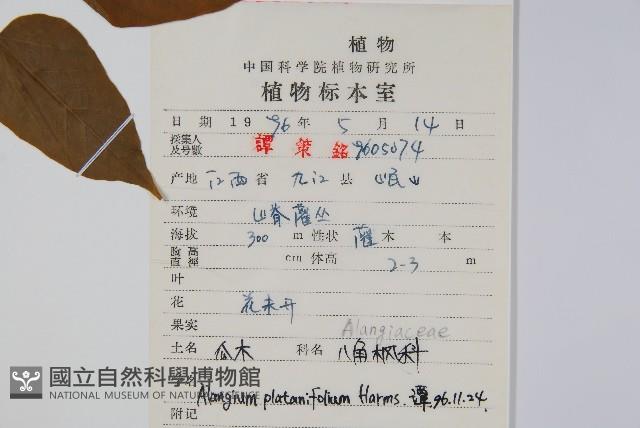 植物
中国科学院植物研究所
植物标本室
日期 1996年 5月 14日
採集人及号数 譚策銘 9605074
产地 江西省 九江县 岷山
环境 山脊灌丛
海拔 300 m 性状 灌木 本
胸高直徑 cm 体高 2-3 m
叶
花 花未开
果实 Alangiaceae
土名 瓜木 科名 八角枫科
Alangium platanifolium Harms. 譚 96.11.24.
附记
國立自然科學博物館
NATIONAL MUSEUM OF NATURAL SCIENCE